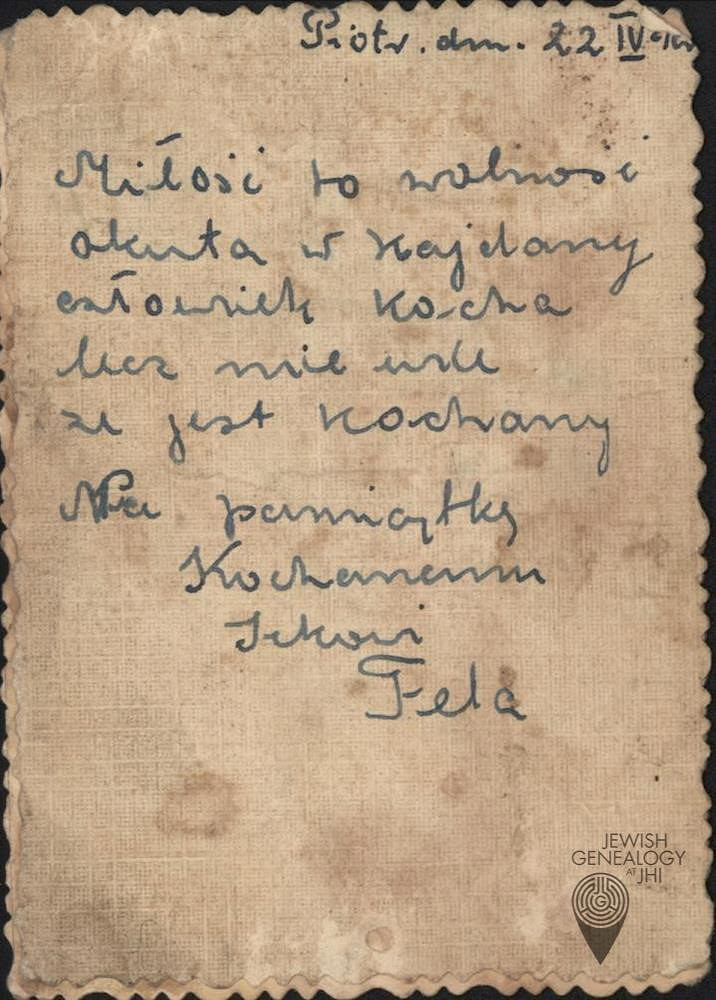 Piotr. dn. 22 IV
Miłość to wolność
okuta w kajdany
człowiek kocha
lecz nie wie
że jest kochany
Na pamiątkę
Kochanemu
Ickowi
Fela
JEWISH
GENEALOGY
AT JHI